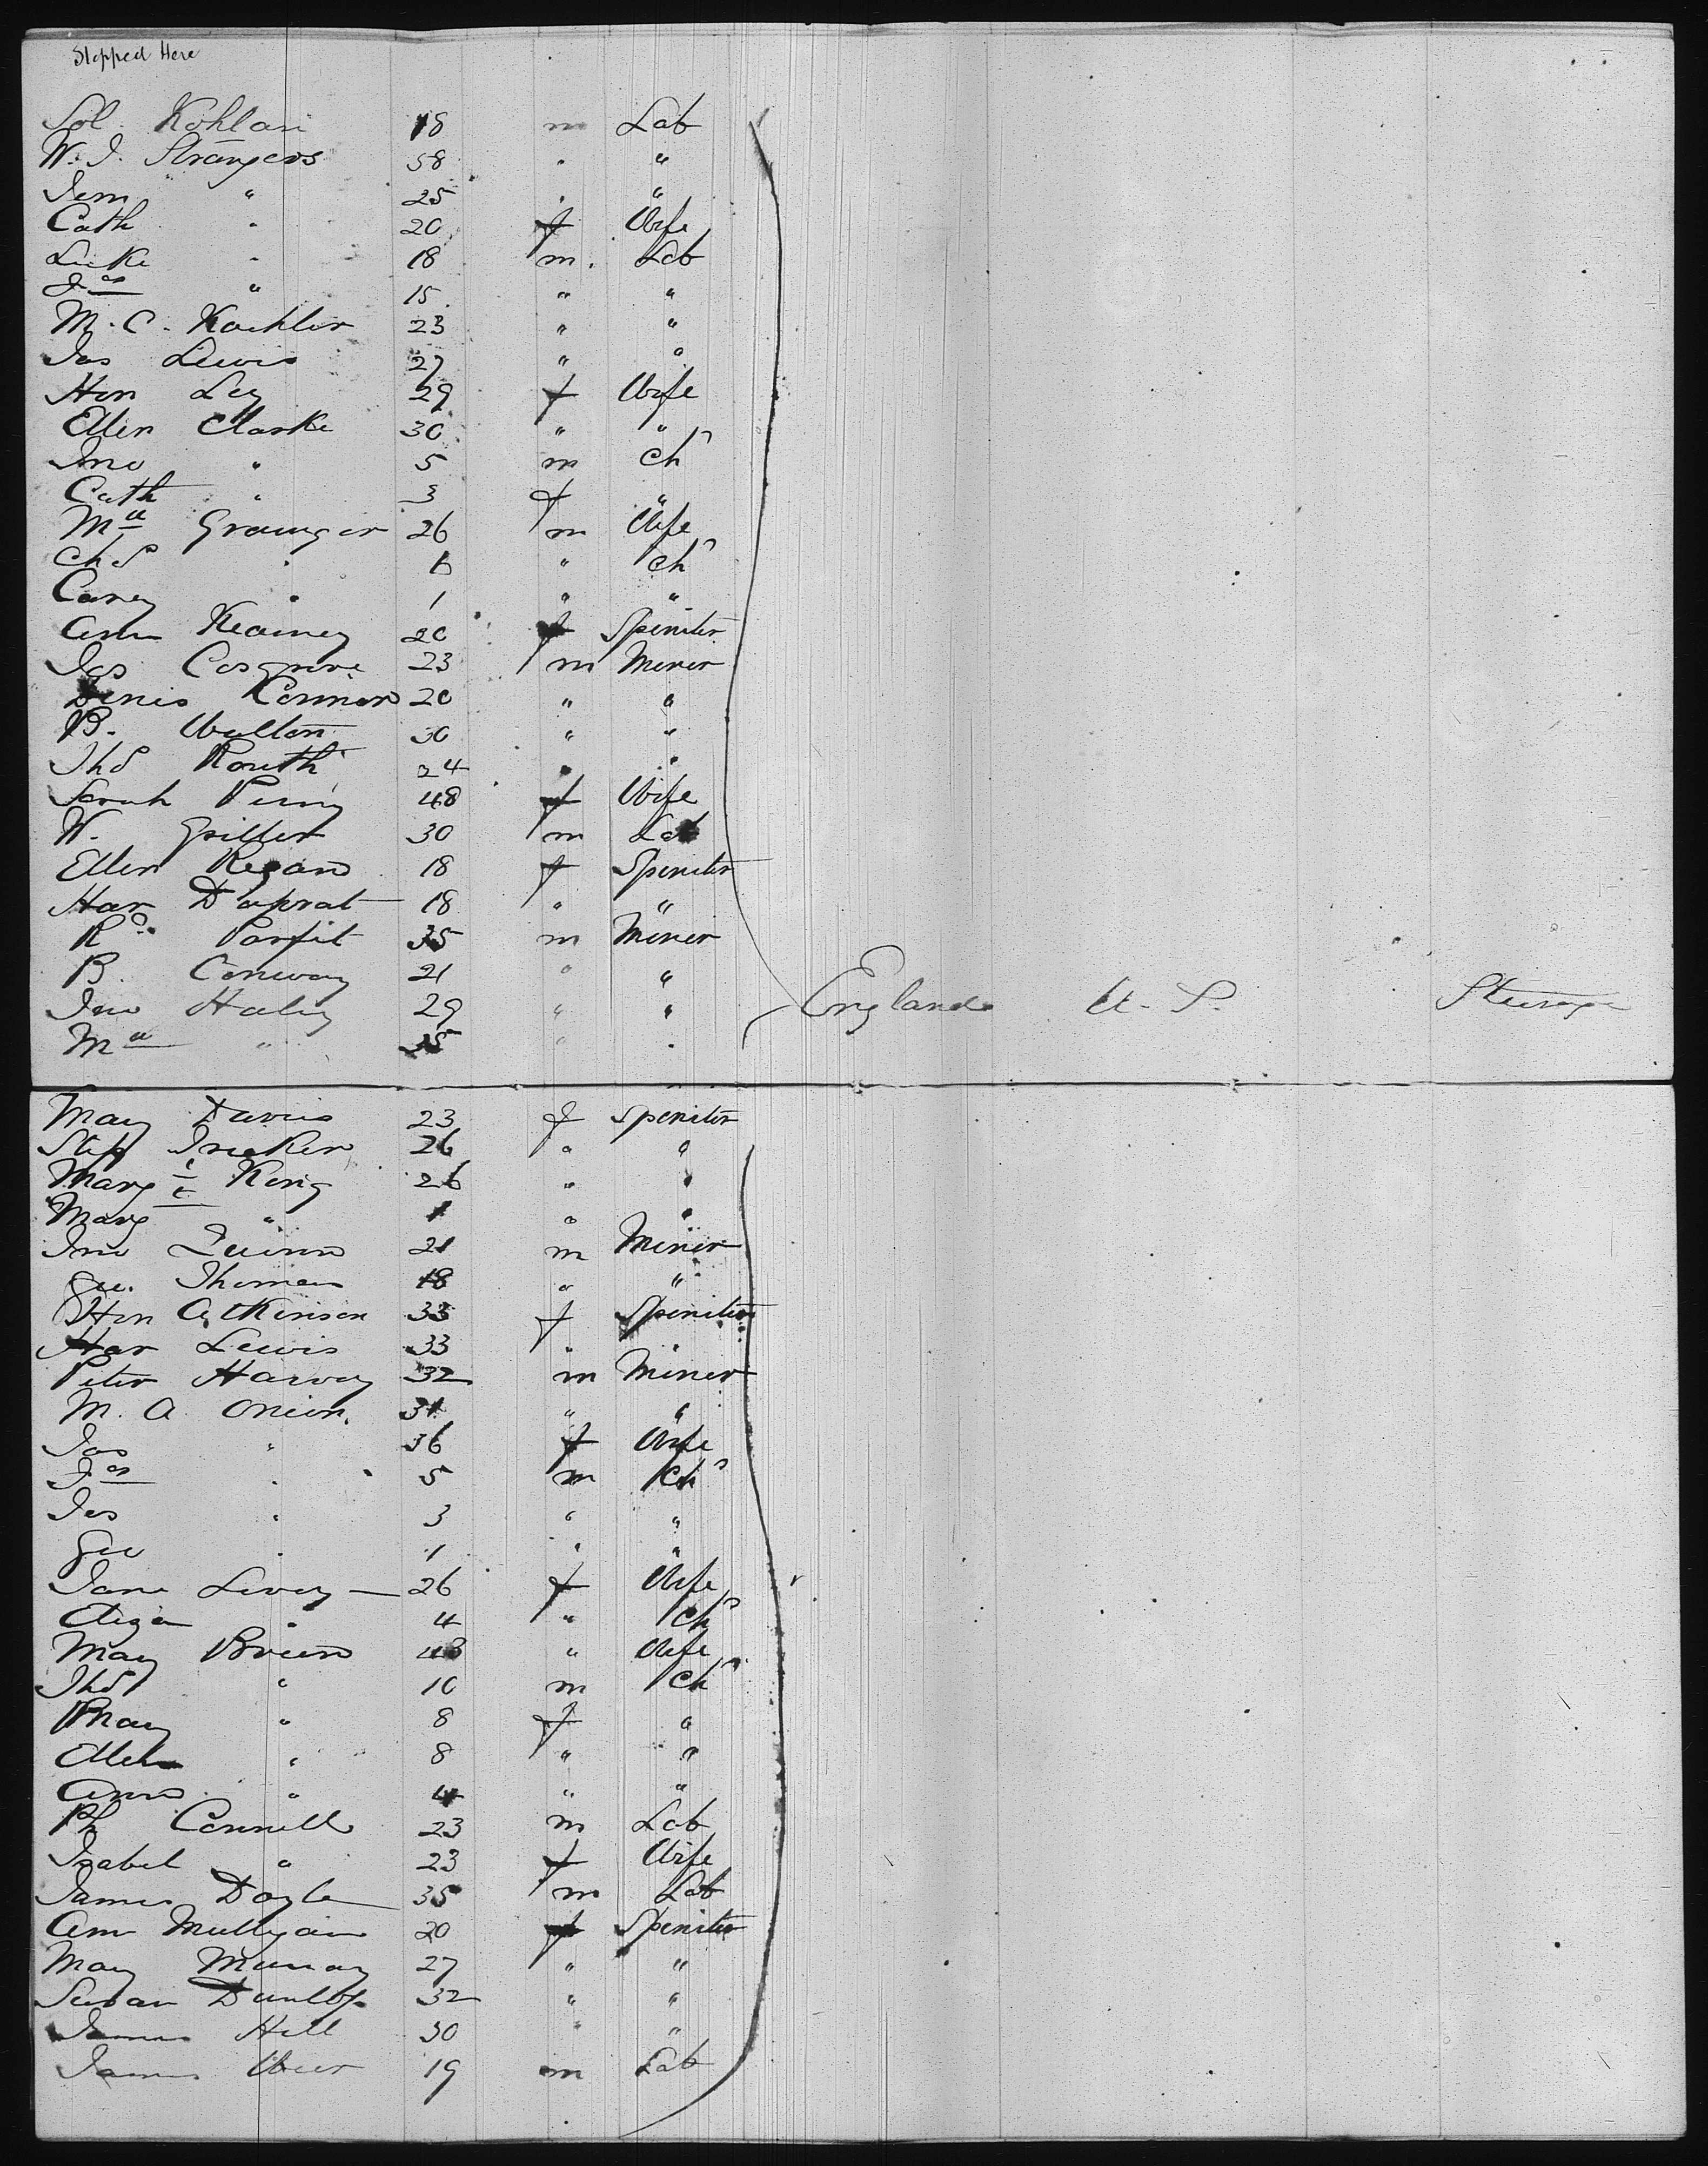 Stopped Here
Sol Kohlan 18 m Lab
W. J. Strangers 58 " "
Jem " 25 " "
Cath " 20 f Wife
Luke " 18 m. Lab
Jas " 15 " "
M. C. Kaehler 23 " "
Jas Lewis 27 " "
Hon Ley 29 f Wife
Ellen Clarke 30 " "
Jno " 5 m Ch
Cath " 3 f "
Ma Grainger 26 m Wife
Chs " 6 " Ch
Carey " 1 " "
Ann Kearney 20 f Spinster
Jas Cosgrove 23 m Miner
Denis Connor 20 " "
B. Walton 30 " "
Ths Routh 24 " "
Sarah Perry 48 f Wife
W. 30 m Lab
Ellen Regan 18 f Spinster
Har Daprat 18 " "
Rd. Parfit 35 m Miner
B. Conway 21 " "
Jno Haley 29 " " England U. S. Steerage
Ma " 35 " "
Mary Davis 23 f Spinster
Step 26 " "
Margt King 26 " "
Marg " 1 " "
Jno Quinn 21 m Miner
Geo. Thomas 18 " "
Hon Atkinson 33 f Spinster
Har Lewis 33 " "
Peter Harvey 32 m Miner
M. A. Onion. 31 " "
Jas " 36 f Wife
Jas " 5 m Ch
Jos " 3 " "
Geo " 1 " "
Jane Livey 26 f Wife
Eliza " 4 " Ch
Mary Brien 48 " Wife
Ths " 10 m Ch
Mary " 8 f "
Ellen " 8 " "
Anne " 4 " "
Ph Connell 23 m Lab
Isabel " 23 f Wife
James Doyle 35 m Lab
Ann Mulligan 20 f Spinster
Mary Murray 27 " "
Susan Dunlop 32 " "
James Hill 30 " "
James Weir 19 m Lab